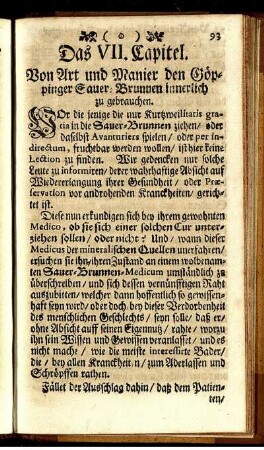 ( o ) 93
Das VII. Capitel.
Von Art und Manier den Göp-
pinger Sauer-Brunnen innerlich
zu gebrauchen.
VOr die jenige die nur Kurtzweillitatis gra-
tia in die Sauer-Brunnen ziehen/ oder
daselbst Avanturiers spielen/ oder per in-
directum, fruchtbar werden wollen/ ist hier keine
Lection zu finden. Wir gedencken nur solche
Leute zu informiren/ derer wahrhaftige Absicht auf
Wiedererlangung ihrer Gesundheit/ oder Præ-
servation vor androhenden Kranckheiten/ gerich-
tet ist.
Diese nun erkundigen sich bey ihrem gewohnten
Medico, ob sie sich einer solchen Cur unter-
ziehen sollen/ oder nicht? Und/ wann dieser
Medicus der mineralischen Quellen unerfahren/
ersuchen sie ihn/ ihren Zustand an einem wolbenam-
ten Sauer-Brunnen-Medicum umständlich zu
überschreiben/ und sich dessen vernünfftigen Raht
auszubitten/ welcher dann hoffentlich so gewissen-
haft seyn wird/ oder doch/ bey dieser Verdorbenheit
des menschlichen Geschlechts/ seyn solle/ daß er/
ohne Absicht auff seinen Eigennutz/ rahte/ worzu
ihn sein Wissen und Gewissen veranlasset/ und es
nicht mache/ wie die meiste interessirte Bader/
die/ bey allen Kranckheiten/ zum Aderlassen und
Schröpffen rathen.
Fället der Ausschlag dahin/ daß dem Patien-
ten/